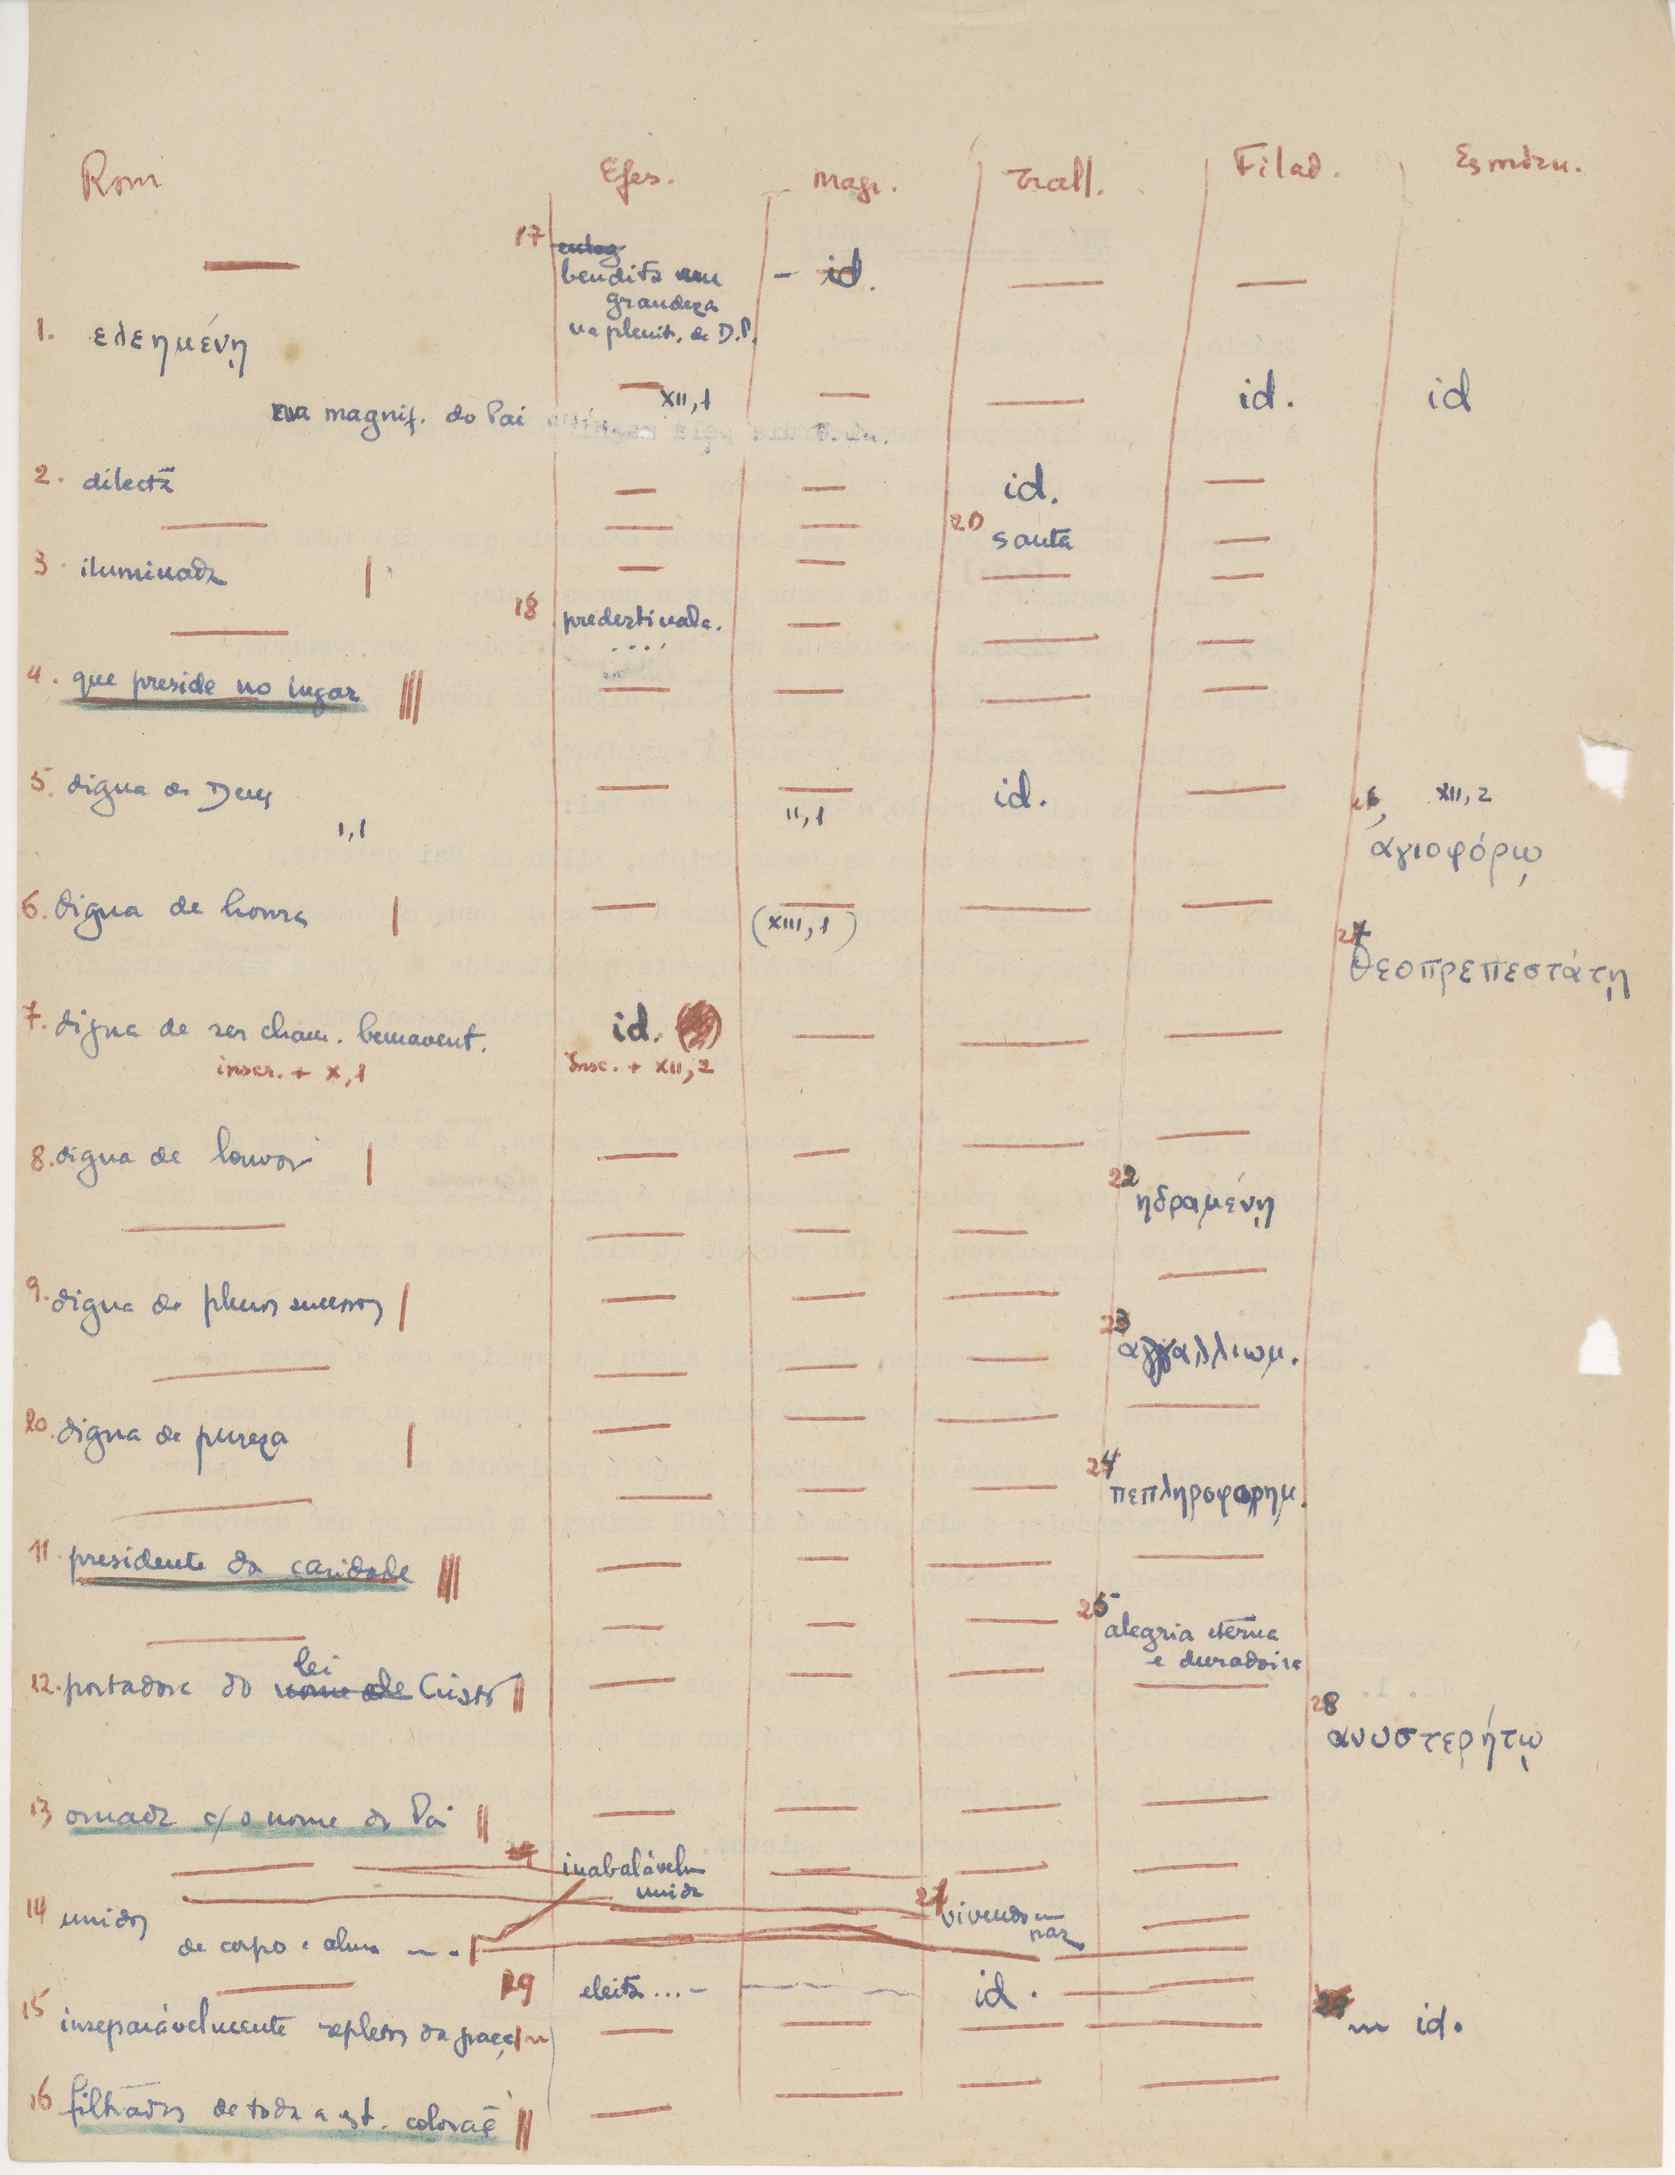 Rom Efes. Magn. Trall. Filad. Esmirn.
17
bendita em — id.
grandeza
na plenit. de D.P.
1. ελεημένῃ
XII,1 id. id
na magnif. do Pai
2. dilecta id.
20 santa
3. iluminada
18 predestinada.
....
4. que preside no lugar
5. digna de Deus id.
1,1 II,1 26, XII,2
αγιοφόρῳ
6. digna de honra (XIII,1)
27
θεοπρεπεστάτῃ
7. digna de ser cham. bemavent. id.
inscr. + X,1 Insc. + XII,2
8. digna de louvor
22
ηδραμένῃ
9. digna de plenos sucessos
23
αγαλλιωμ.
10. digna de pureza
24
πεπληροφορημ.
11. presidente da caridade
25
alegria eterna
e duradoira
lei
12. portadora do nome de Cristo
28
ανυστερήτῳ
13 ornada c/ o nome do Pai
inabalável
unida
14 unidos 21 vivendo em
paz
de corpo e alma
19 eleita... id.
15 inseparávelmente repletos da graça id.
16 filtrados de toda a est. coloraç